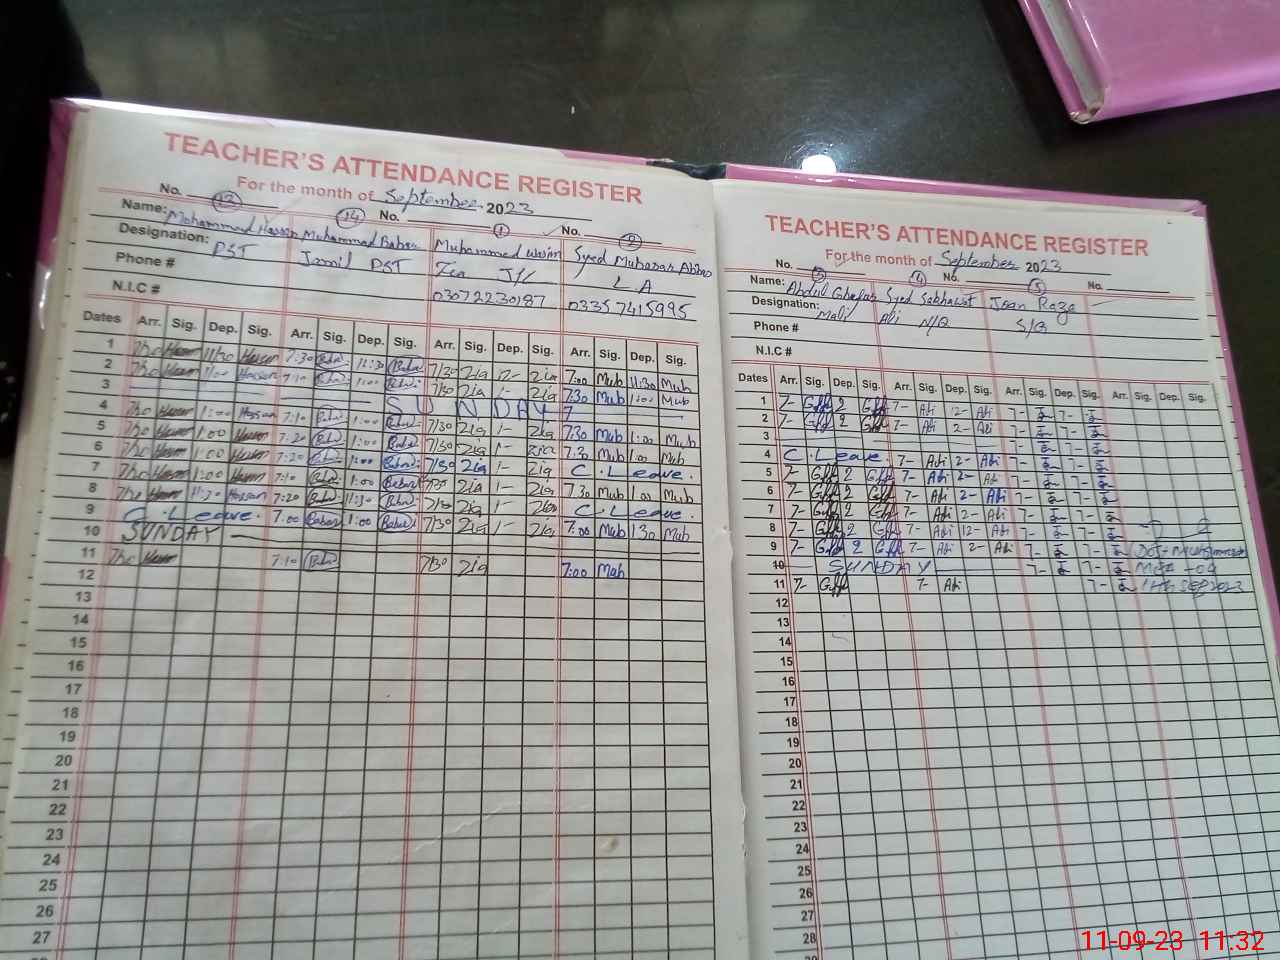 TEACHER'S ATTENDANCE REGISTER
For the month of September 2023
No. 13 14 No. 1 No. 2
Name: Mohammad Hassan Muhammad Babar Muhammad Wasim Syed Mubasar Abbas
Designation: PST Jamil PST Zia J/C L.A
Phone # 03072230187 03357415995
N.I.C #
Dates Arr. Sig. Dep. Sig. Arr. Sig. Dep. Sig. Arr. Sig. Dep. Sig. Arr. Sig. Dep. Sig.
1 11/30 7:30 11:30 7/30 Zia 12- Zia 7:00 Mub 11:30 Mub
2 11:00 Hassan 7:10 1:00 7/30 Zia 1- Zia 7:30 Mub 1:00 Mub
3 SUNDAY
4 1:00 Hassan 7:10 1:00 7/30 Zia 1- Zia 7:30 Mub 1:00 Mub
5 1:00 7:20 1:00 7/30 Zia 1- Zia 7:30 Mub 1:00 Mub
6 1:00 7:20 1:00 7/30 Zia 1- Zia C. Leave.
7 1:00 7:10 1:00 7/30 Zia 1- Zia 7:30 Mub 1:00 Mub
8 11:30 Hassan 7:20 11:30 7/30 Zia 1- Zia C. Leave.
9 C. Leave. 7:00 Babar 1:00 7/30 Zia 1- Zia 7:00 Mub 1:30 Mub
10 SUNDAY
11 7:10 7/30 Zia 7:00 Mub
12
13
14
15
16
17
18
19
20
21
22
23
24
25
26
27
TEACHER'S ATTENDANCE REGISTER
For the month of September 2023
No. 3 4 No. 5 No.
Name: Abdul Ghafar Syed Sakhawat Joan Raza
Designation: Mali Abi N/Q S/G
Phone #
N.I.C #
Dates Arr. Sig. Dep. Sig. Arr. Sig. Dep. Sig. Arr. Sig. Dep. Sig. Arr. Sig. Dep. Sig.
1 7- 2 7- Abi 12- Abi 7- 7-
2 7- 2 7- Abi 2- Abi 7- 7-
3 7- 7-
4 C. Leave. 7- Abi 2- Abi 7- 7-
5 7- 2 7- Abi 2- Abi 7- 7-
6 7- 2 7- Abi 2- Abi 7- 7-
7 7- 2 7- Abi 2- Abi 7- 7-
8 7- 2 7- Abi 12- Abi 7- 7-
9 7- 2 7- Abi 2- Abi 7- 7-
10 SUNDAY 7- 7- MEA -09
11 7- 7- Abi 7- 11th SEP 2023
12
13
14
15
16
17
18
19
20
21
22
23
24
25
26
27
28
11-09-23 11:32